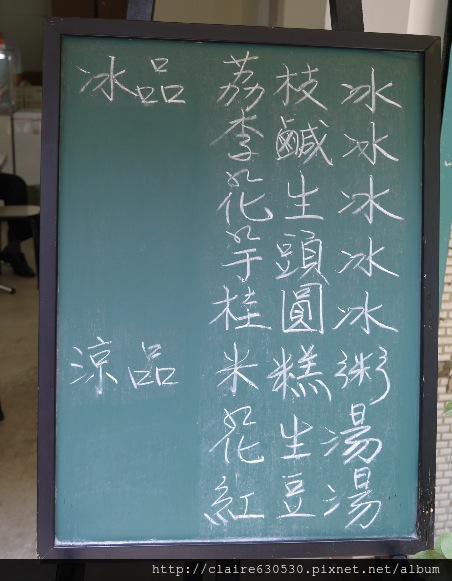 冰品 荔枝冰
李鹹冰
花生冰
芋頭冰
桂圓冰
涼品 米糕粥
花生湯
紅豆湯
http://claire630530.pixnet.net/album